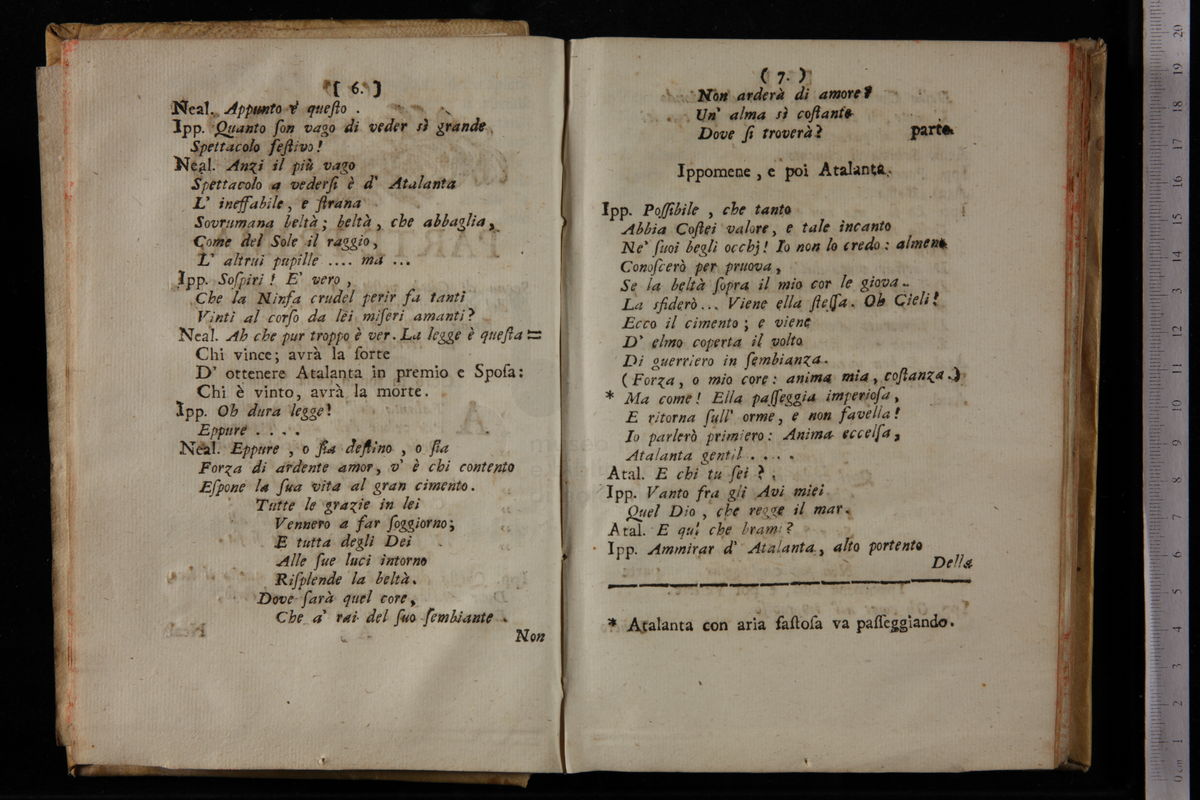 [ 6. ]
Neal. Appunto è queſto .
Ipp. Quanto ſon vago di veder sì grande
Spettacolo feſtivo!
Neal. Anzi il più vago
Spettacolo a vederſi è d' Atalanta
L' ineffabile, e ſtrana
Sovrumana beltà; beltà, che abbaglia,
Come del Sole il raggio,
L' altrui pupille .... ma ...
Ipp. Soſpiri! E' vero,
Che la Ninfa crudel perir fa tanti
Vinti al corſo da lei miſeri amanti?
Neal. Ah che pur troppo è ver. La legge è queſta =
Chi vince; avrà la ſorte
D' ottenere Atalanta in premio e Spoſa:
Chi è vinto, avrà la morte.
Ipp. Oh dura legge!
Eppure . . . .
Neal. Eppure, o ſia deſtino, o ſia
Forza di ardente amor, v' è chi contento
Eſpone la ſua vita al gran cimento.
Tutte le grazie in lei
Vennero a far ſoggiorno;
E tutta degli Dei
Alle ſue luci intorno
Riſplende la beltà.
Dove ſarà quel core,
Che a' rai del ſuo ſembiante
Non
( 7. )
Non arderà di amore?
Un' alma sì coſtante
Dove ſi troverà? parte.
Ippomene, e poi Atalanta.
Ipp. Poſſibile, che tanto
Abbia Coſtei valore, e tale incanto
Ne' ſuoi begli occhj! Io non lo credo: almeno
Conoſcerò per pruova,
Se la beltà ſopra il mio cor le giova..
La sfiderò... Viene ella ſteſſa. Oh Cieli!
Ecco il cimento; e viene
D' elmo coperta il volto
Di guerriero in ſembianza.
(Forza, o mio core: anima mia, coſtanza.)
* Ma come! Ella paſſeggia imperioſa,
E ritorna ſull' orme, e non favella!
Io parlerò primiero: Anima eccelſa,
Atalanta gentil . . . .
Atal. E chi tu ſei?
Ipp. Vanto fra gli Avi miei
Quel Dio, che regge il mar.
Atal. E quì che brami?
Ipp. Ammirar d' Atalanta, alto portento
Della
* Atalanta con aria faſtoſa va paſſeggiando.